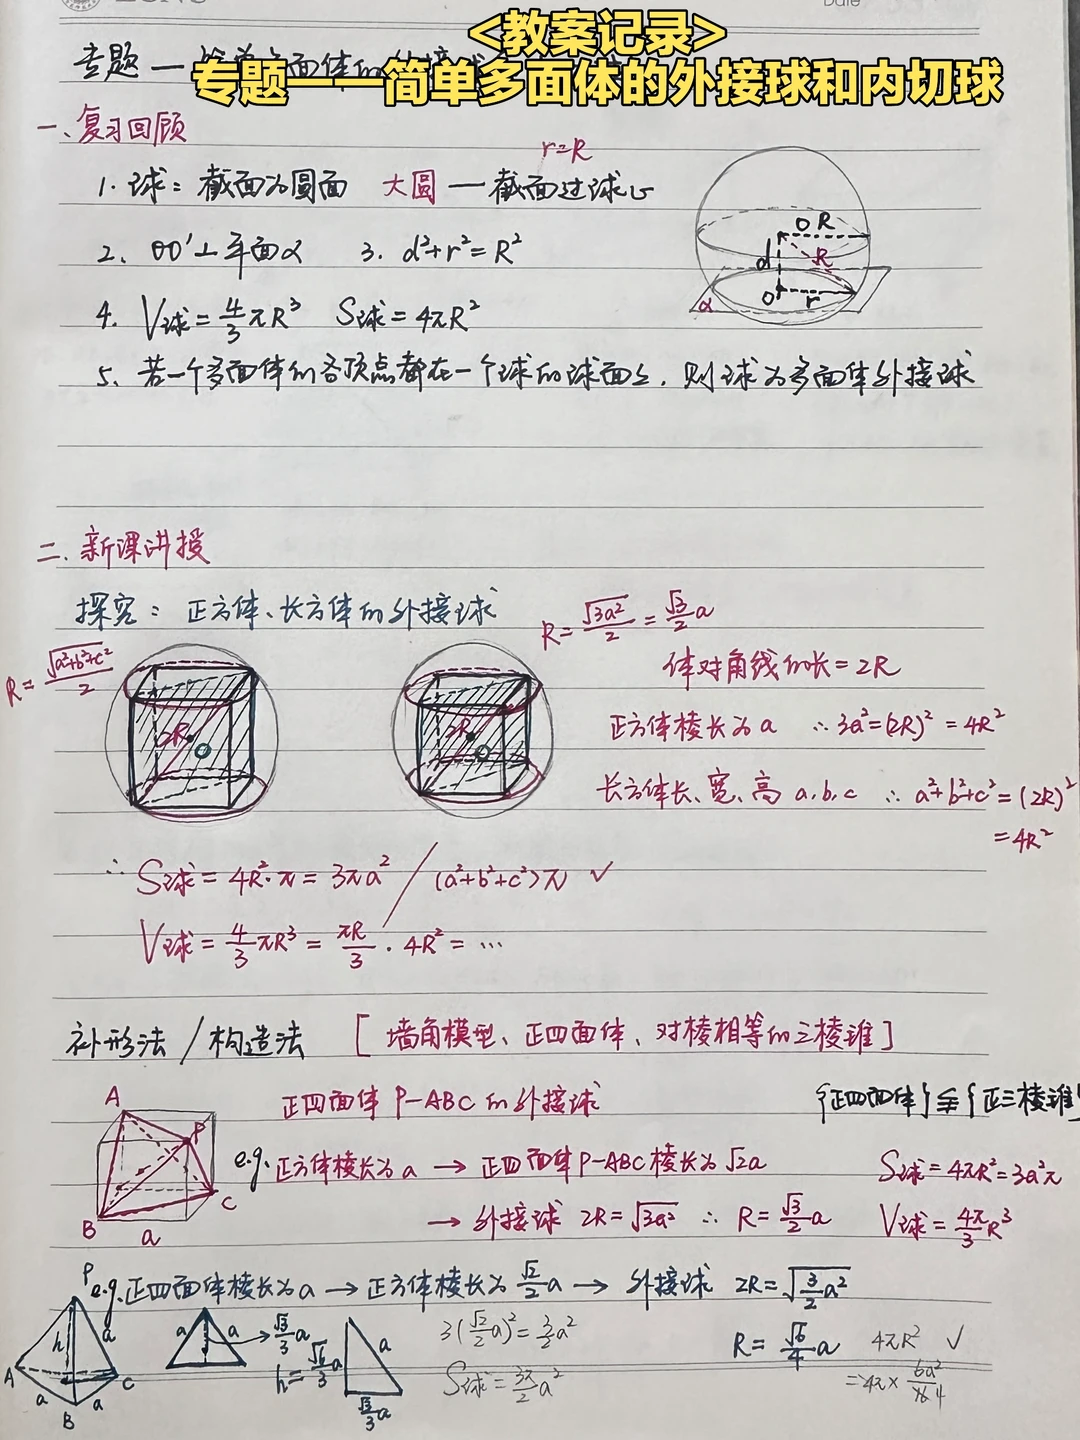 Date
<教案记录>
专题——简单多面体的外接球和内切球
专题一
一、复习回顾
r=R
1. 球：截面为圆面 大圆 — 截面过球心
2. OO'⊥平面α 3. d²+r²=R²
O R
d R
O' r
α
4. V球=4/3πR³ S球=4πR²
5. 若一个多面体的各顶点都在一个球的球面上，则球为多面体外接球
二、新课讲授
探究：正方体、长方体的外接球
R=√(a²+b²+c²)/2
R=√(3a²)/2=√3/2a
2R O
2R O
体对角线的长=2R
正方体棱长为a ∴3a²=(2R)²=4R²
长方体长、宽、高 a,b,c ∴a²+b²+c²=(2R)²
=4R²
∴S球=4R²·π=3πa² / (a²+b²+c²)π ✓
V球=4/3πR³=πR/3·4R²=…
补形法/构造法 [墙角模型、正四面体、对棱相等的三棱锥]
正四面体P-ABC的外接球
{正四面体}⫋{正三棱锥}
A
P
B
C
a
e.g. 正方体棱长为a → 正四面体P-ABC棱长为√2a
S球=4πR²=3a²π
→ 外接球 2R=√(3a²) ∴R=√3/2a
V球=4π/3R³
e.g. 正四面体棱长为a → 正方体棱长为√2/2a → 外接球 2R=√(3/2a²)
P
h a
A C
a a
B
a a → √3/3a
h=√6/3a
a
√3/3a
3(√2/2a)²=3/2a²
S球=3π/2a²
R=√6/4a 4πR² ✓
=4π×6a²/16 4